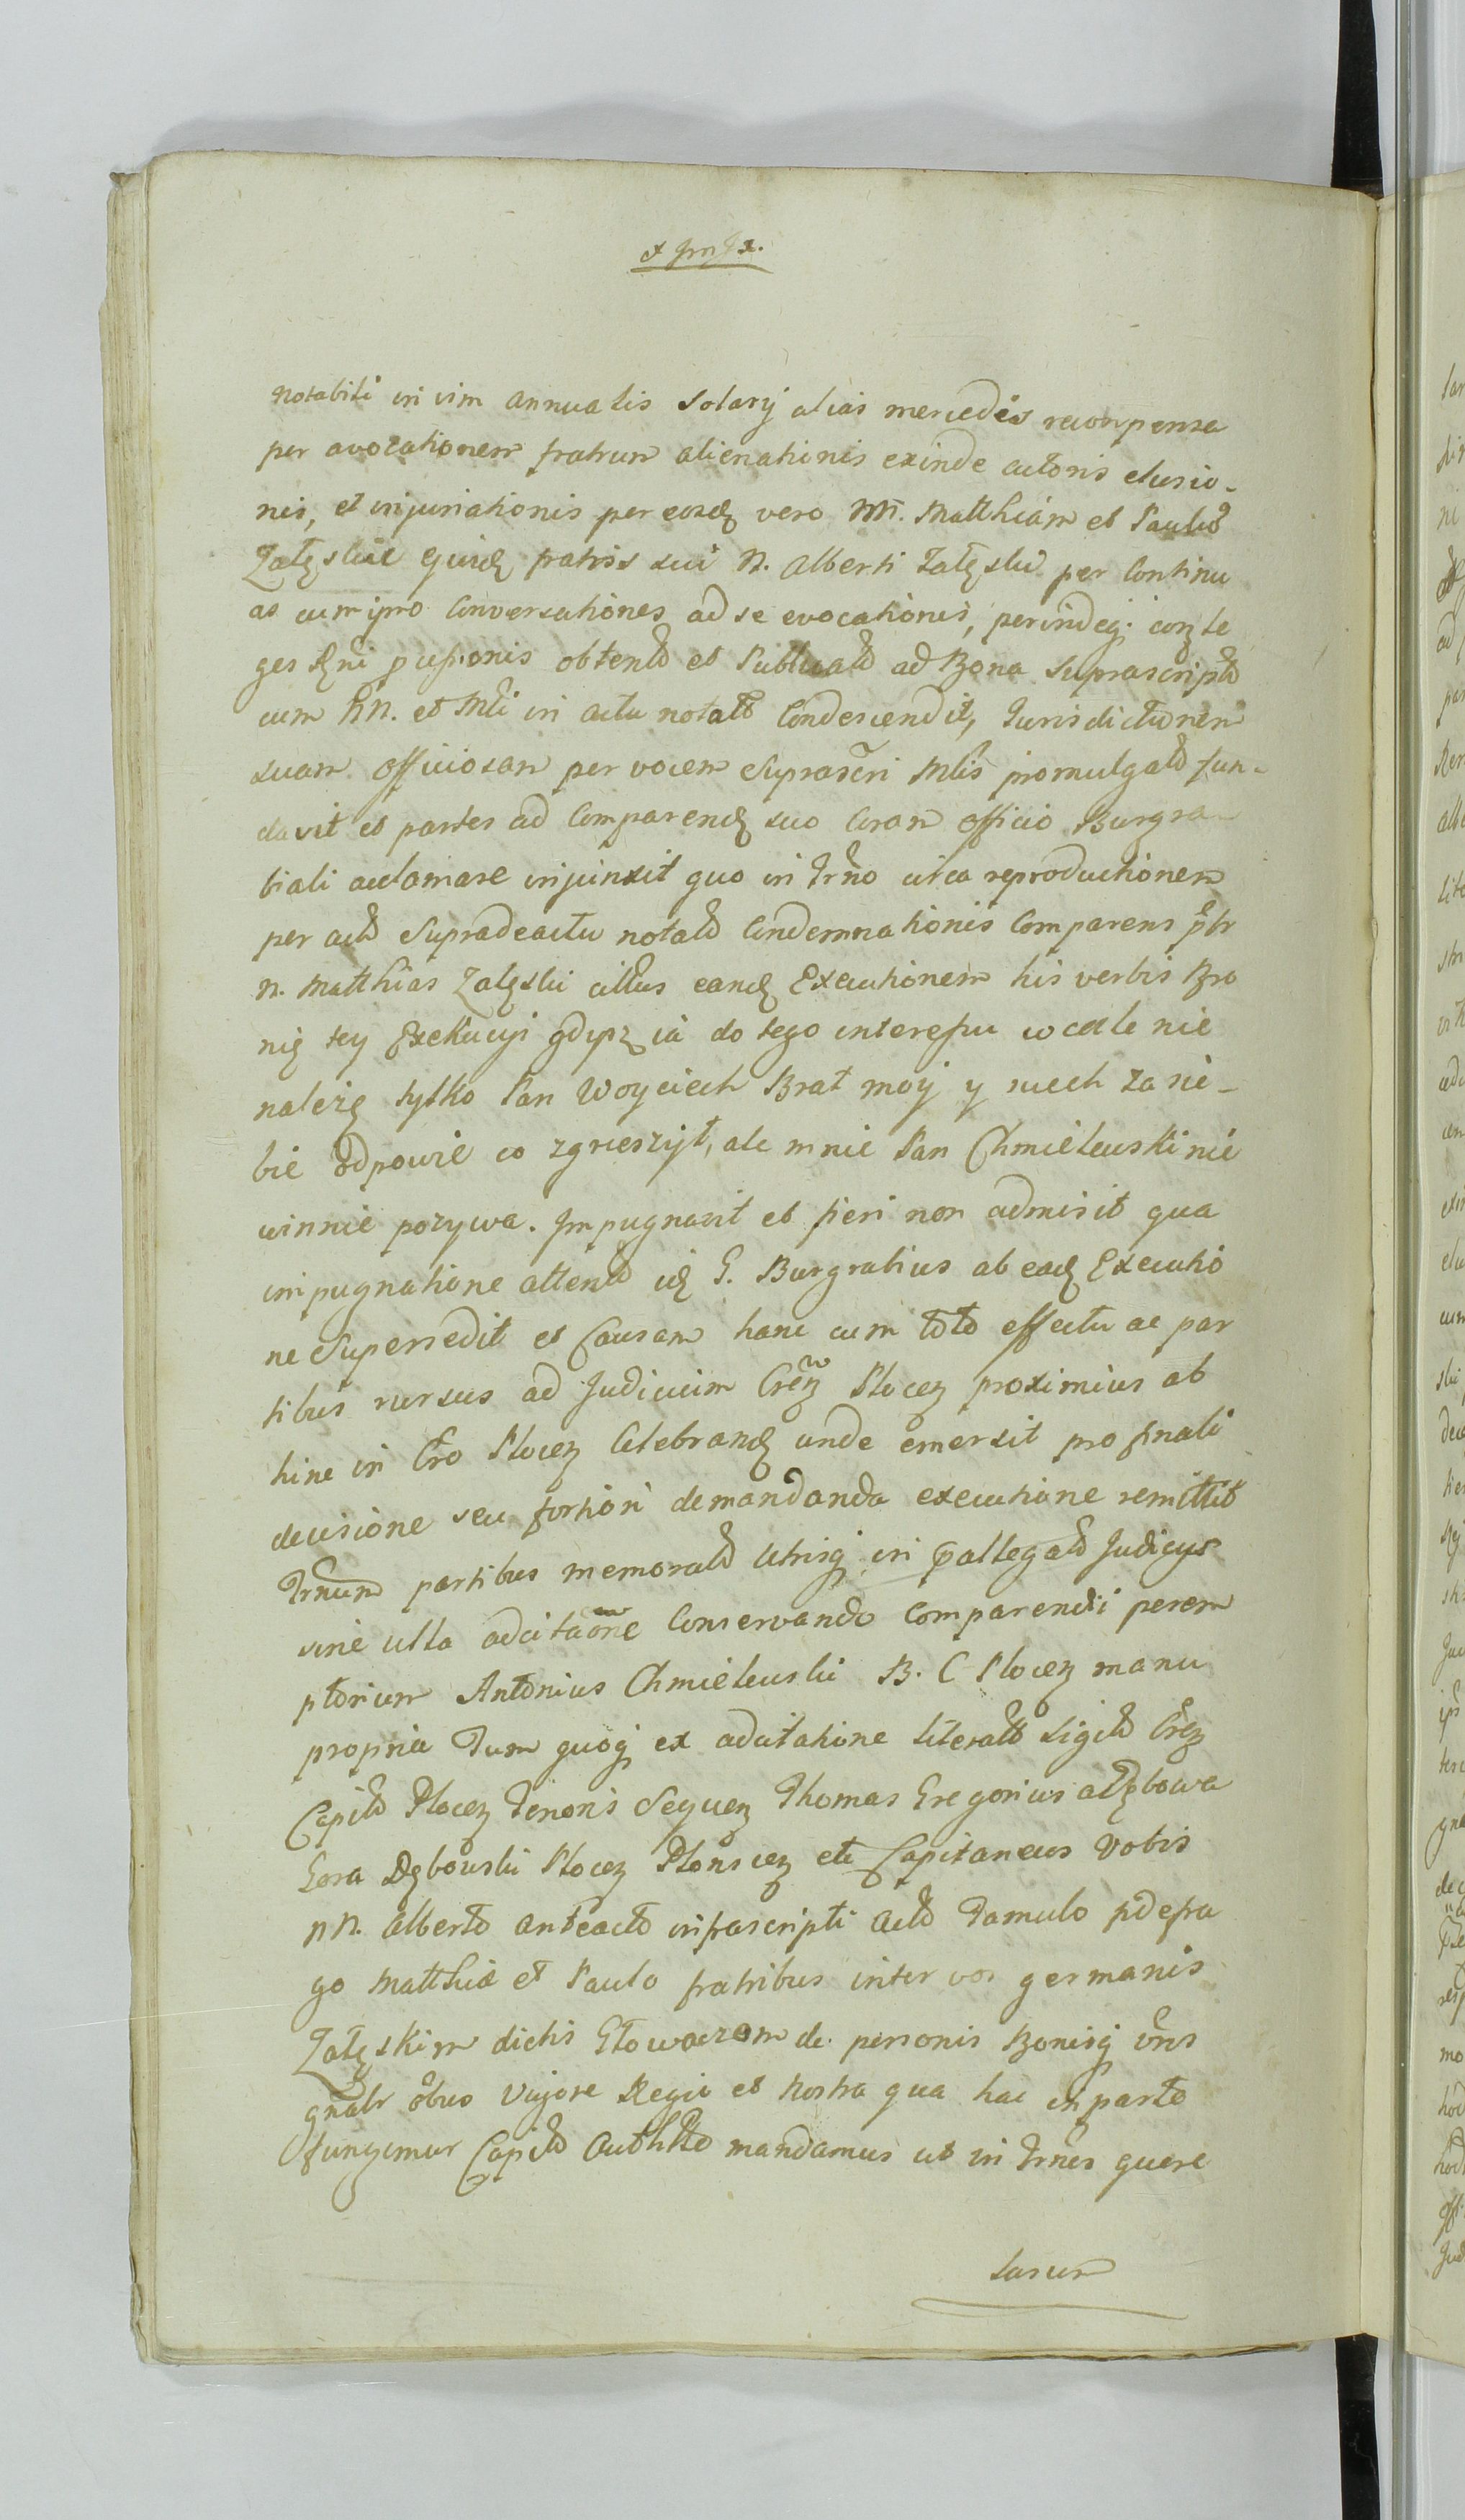 notabili in vim annualis Solarÿ alias mercedis recompensa
per avocationem fratrum alienationis exinde actoris elusio-
nis, et injuriationis per eosdę vero NN. Matthiam et Paulū
Załęskie quidę fratris sui N. Alberti Załęski per Continu
as cum ipso Conversationes ad se evocationis, perindeq. conz le
ges obtentū et Publicatū ad Bona Suprascriptū
cum NN. et Mli in actu notatū Condescendit, Jurisdictionem
suam officiosam per vocem Suprascri Mlis promulgatū fun-
davit et partes ad Comparendę suo Coram officio Burgra-
biali acclamare injunxit quo in Trno circa reproductionem
per actū Supradeactu notatū Condemnationis Comparens
N. Matthias Załęski cittus eandę Executionem his verbis Bro
nię tey Exekucyi gdysz ia do tego interessu wcale nie
należę tylko Pan Woyciech Brat moÿ y niech za sie-
bie odpowie co zgrieszÿł, ale mnie Pan Chmielewski nie
winnie pozywa. Impugnavit et fieri non admisit qua
impugnatione attentū idę G. Burgrabius ab eadę Executio
ne Supersedit et Causam hanc cum toto effectu ac par
tibus rursus ad Judicium Crenz Plocenz proximius ab
hinc in Cro Plocenz Celebrandę unde emersit pro finali
decisione seu fortiori demandanda executione remittit
Trnum partibus memoratū Utrisq in pallegatū Judicÿs
sine ulla adcitaone Conservando Comparendi perem
ptorium Antonius Chmielewski B. C Plocenz manu
propria Tum quoq ex adcitatione literatū sigilū Crez
Capitū Plocenz Tenoris Sequenz Thomas Gregorius a Dębowa
Gora Dębowski Plocenz Płonscenz etc Capitaneus Vobis
NN. Alberto anteacto infrascripti Actū Famulo
go Matthiæ et Paulo fratribus inter vos germanis
Załęskim dictis Głowaczom de personis Bonisq vris
gnalr obus Vigore Regia et nostra qua hac in parte
fungimur Capitū Authtte mandamus ut in Trnis quere
larum